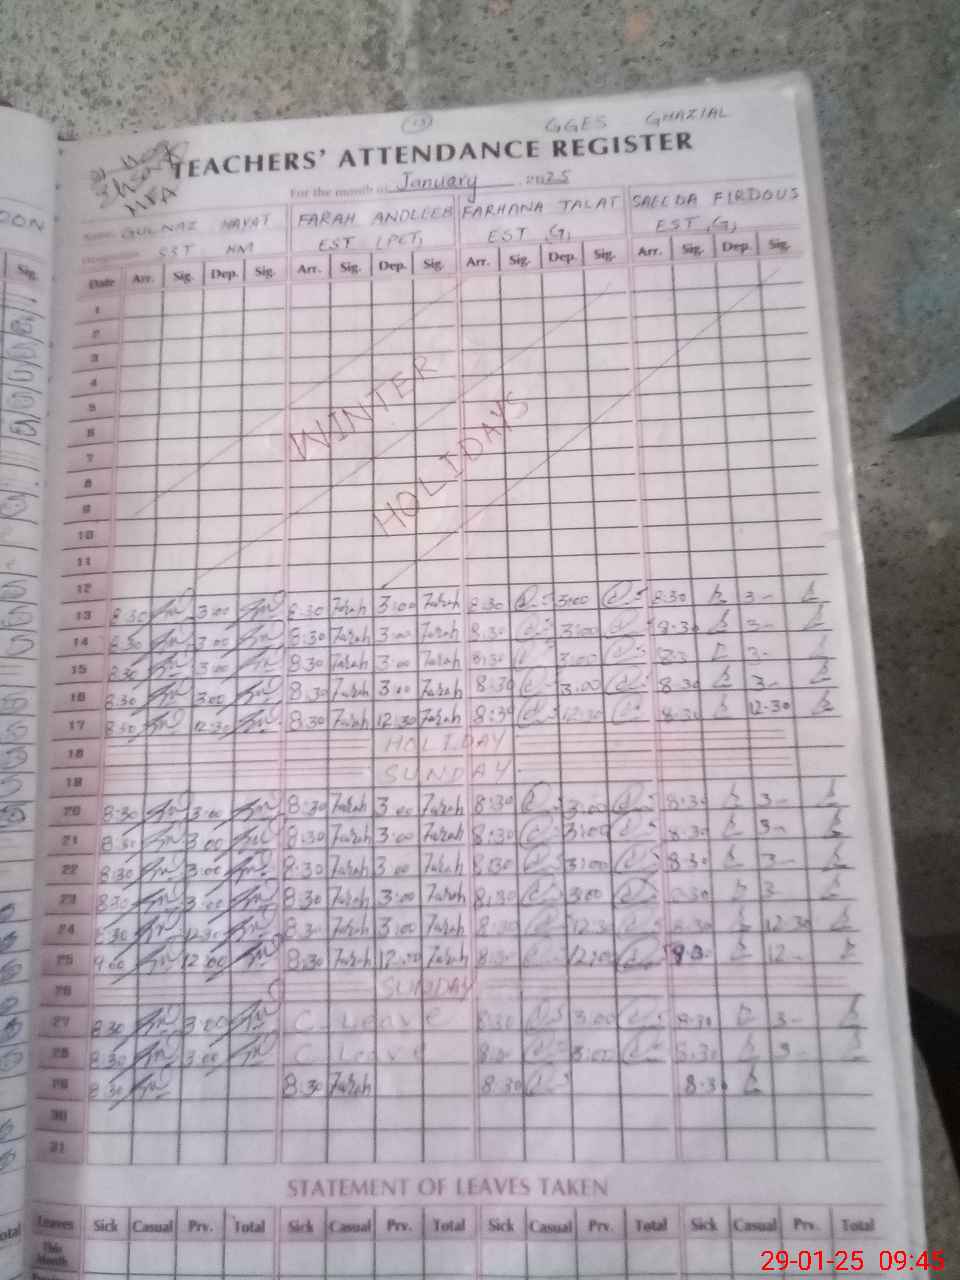 13
GGES GHAZIAL
TEACHERS' ATTENDANCE REGISTER
For the month of January 2025
Name GULNAZ HAYAT FARAH ANDLEEB FARHANA TALAT SAEEDA FIRDOUS
SST HM EST (PET) EST (G) EST (G)
Date Arr. Sig. Dep. Sig. Arr. Sig. Dep. Sig. Arr. Sig. Dep. Sig. Arr. Sig. Dep. Sig.
1
2
3
4
5
6
7
8
9
10
11
12
WINTER
HOLIDAYS
13 8:30 3:00 8:30 Farah 3:00 Farah 8:30 3:00 8:30 3-
14 8:30 3:00 8:30 Farah 3:00 Farah 8:30 3:00 8:30 3-
15 8:30 3:00 8:30 Farah 3:00 Farah 8:30 3:00 3-
16 8:30 3:00 8:30 Farah 3:00 Farah 8:30 3:00 8:30 3-
17 8:30 12:30 8:30 Farah 12:30 Farah 8:30 12:30 8:30 12-30
18 HOLIDAY
19 SUNDAY
20 8:30 3:00 8:30 Farah 3:00 Farah 8:30 3:00 8:30 3-
21 8:30 3:00 8:30 Farah 3:00 Farah 8:30 3:00 8:30 3-
22 8:30 3:00 8:30 Farah 3:00 Farah 8:30 3:00 8:30 3-
23 8:30 3:00 8:30 Farah 3:00 Farah 8:30 3:00 8:30 3
24 8:30 12:30 8:30 Farah 3:00 Farah 8:30 12:30 8:30 12-30
25 9:00 12:00 8:30 Farah 12:00 Farah 8:30 12:00 8:30 12-
26 SUNDAY
27 8:30 3:00 C. Leave 8:30 3:00 8:30 3-
28 8:30 3:00 C. Leave 3:00 8:30 3-
29 8:30 8:30 Farah 8:30 8:30
30
31
STATEMENT OF LEAVES TAKEN
Leaves Sick Casual Prv. Total Sick Casual Prv. Total Sick Casual Prv. Total Sick Casual Prv. Total
This Month
29-01-25 09:45